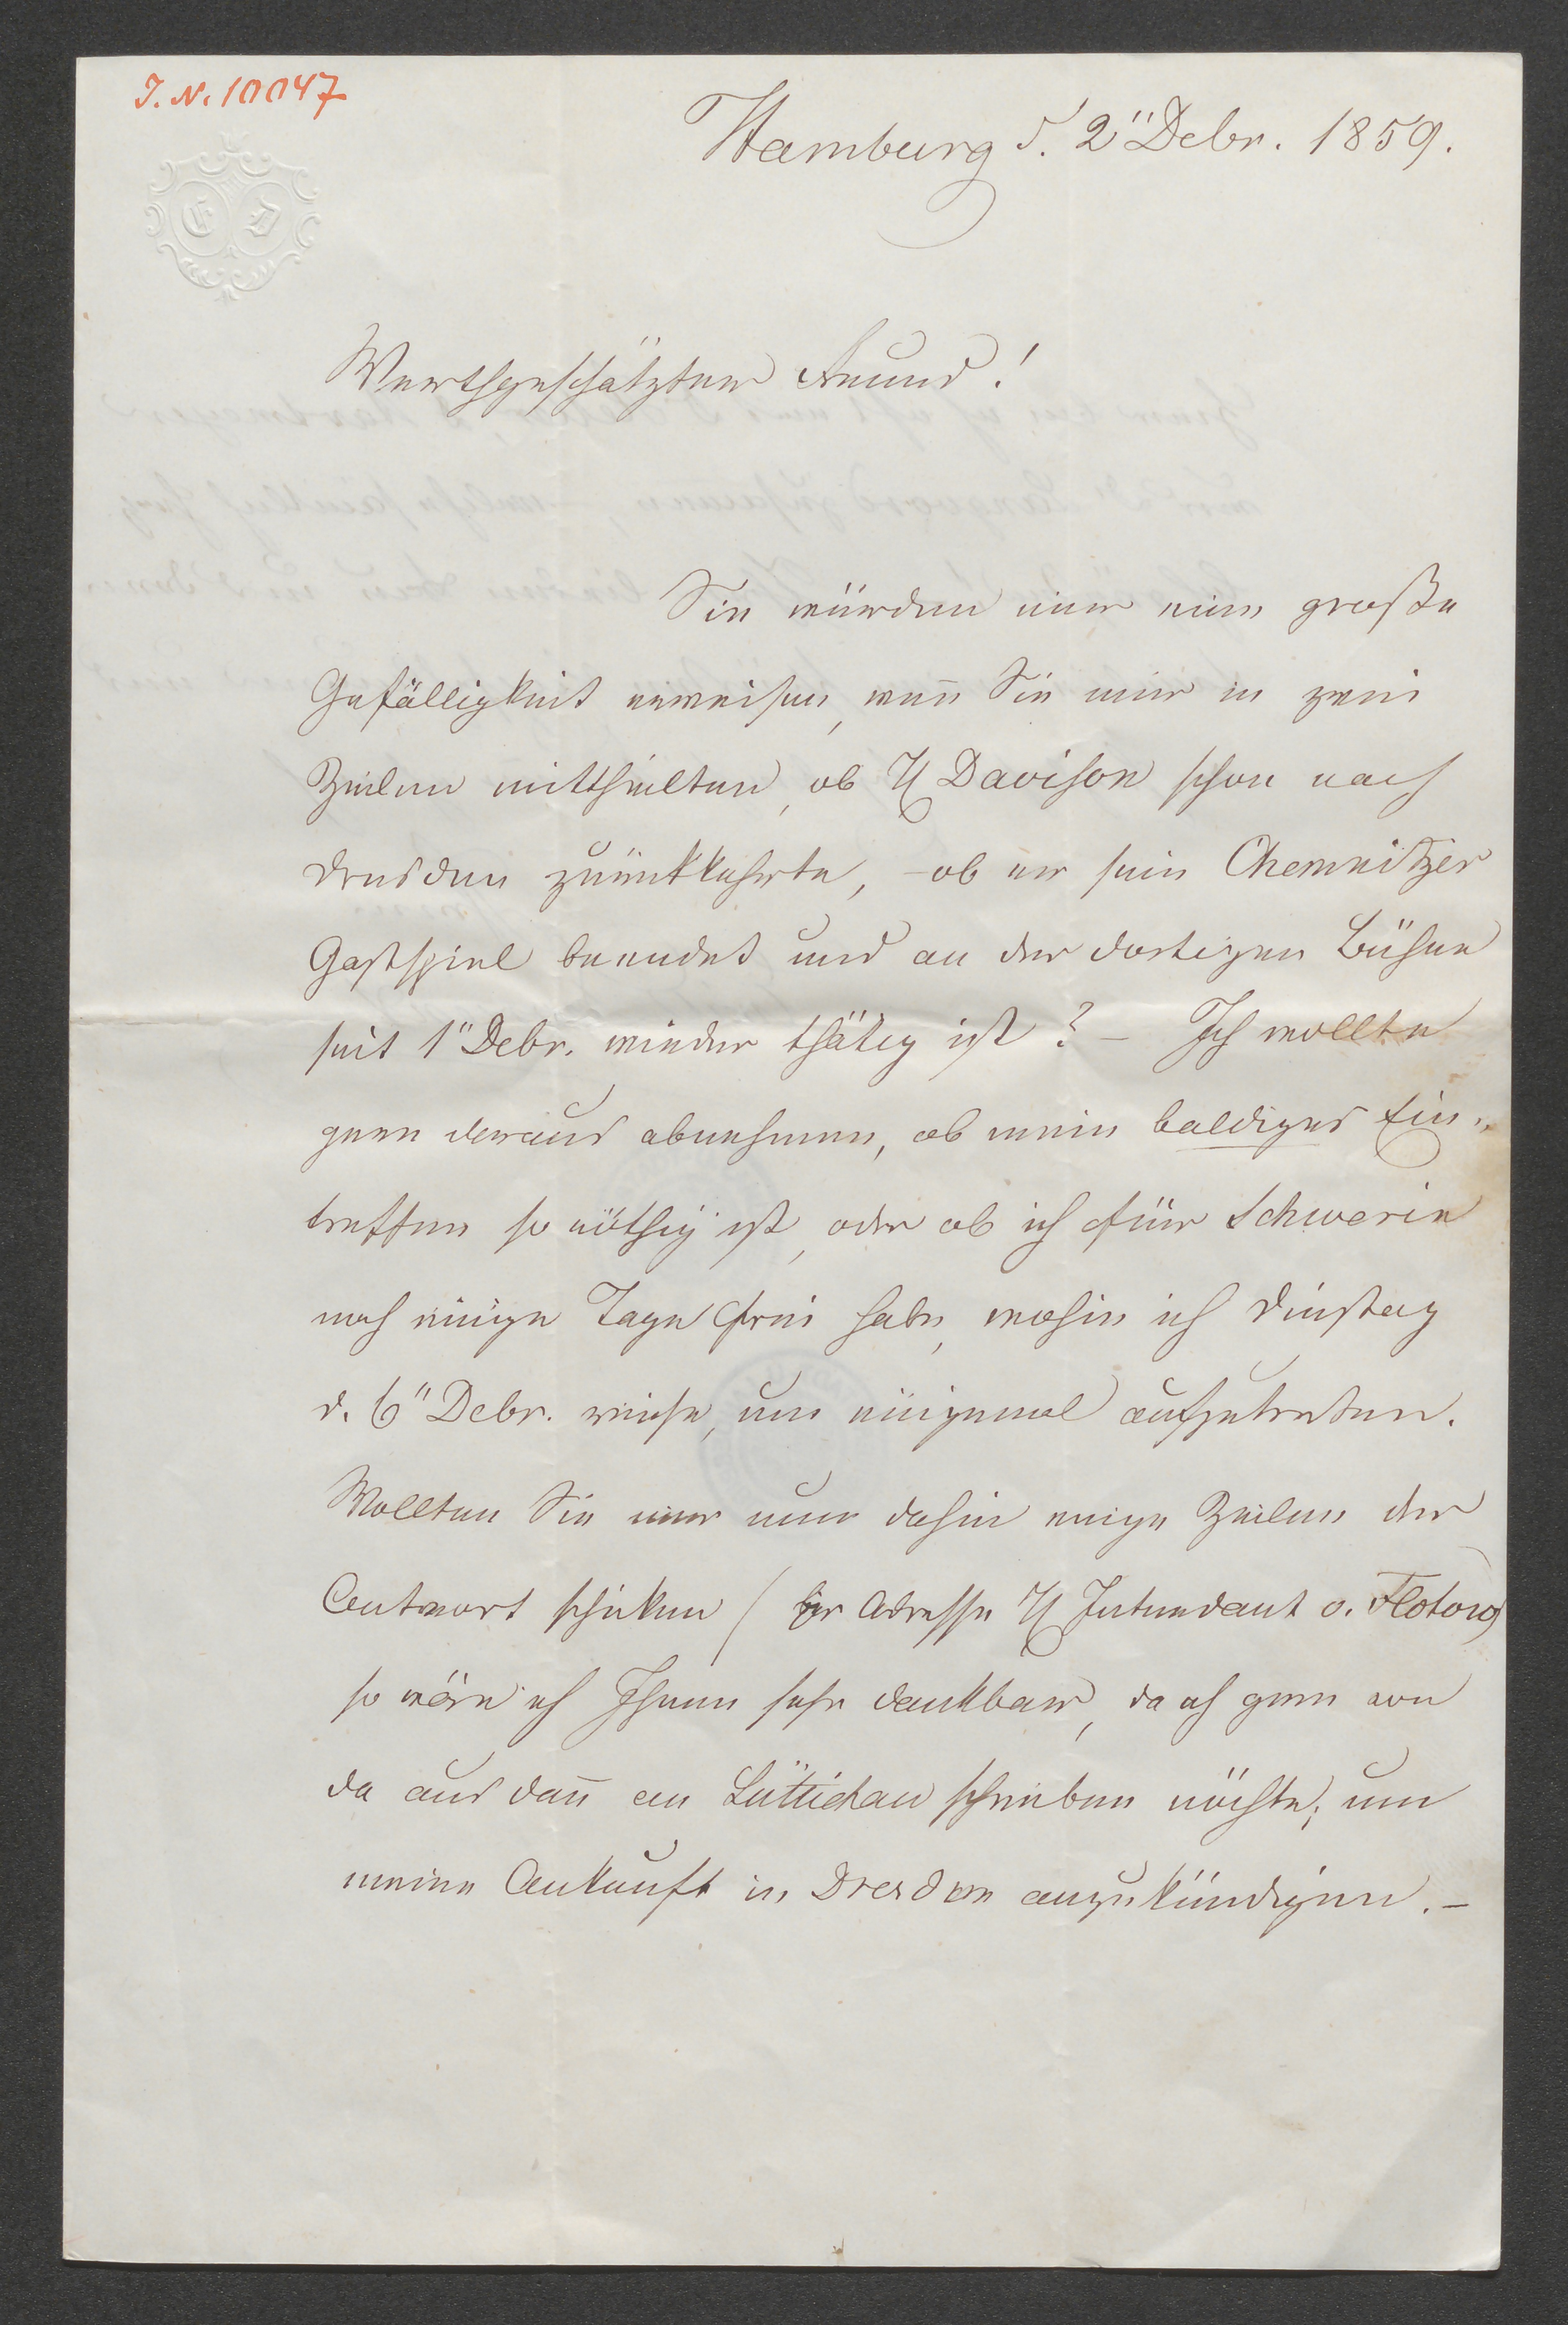 J. N. 10047
Hamburg d. 2" Debr. 1859.
E D
Werthgeschätzter Freund!
Sie würden mir eine große
Gefälligkeit erweisen, weñ Sie mir in zwei
Zeilen mittheilten, ob H Davison schon nach
Dresden zurükkehrte, – ob er sein Chemnitzer
Gastspiel beendet und an der dortigen Bühne
seit 1" Debr. wieder thätig ist? – Ich wollte
gern daraus abnehmen, ob mein baldiges Ein„
treffen so nöthig ist, oder ob ich für Schwerin
noch einige Tage frei habe, wohin ich Dinstag
d. 6" Debr. reise, um einigemal aufzutreten.
Wollten Sie mir nun dahin einige Zeilen der
Antwort schiken (per Adresse H Intendant v. Flotow)
so wäre ich Ihnen sehr dankbar, da ich gern von
da aus dañ an Lüttichau schreiben möchte, um
meine Ankunft in Dresden anzukündigen. –